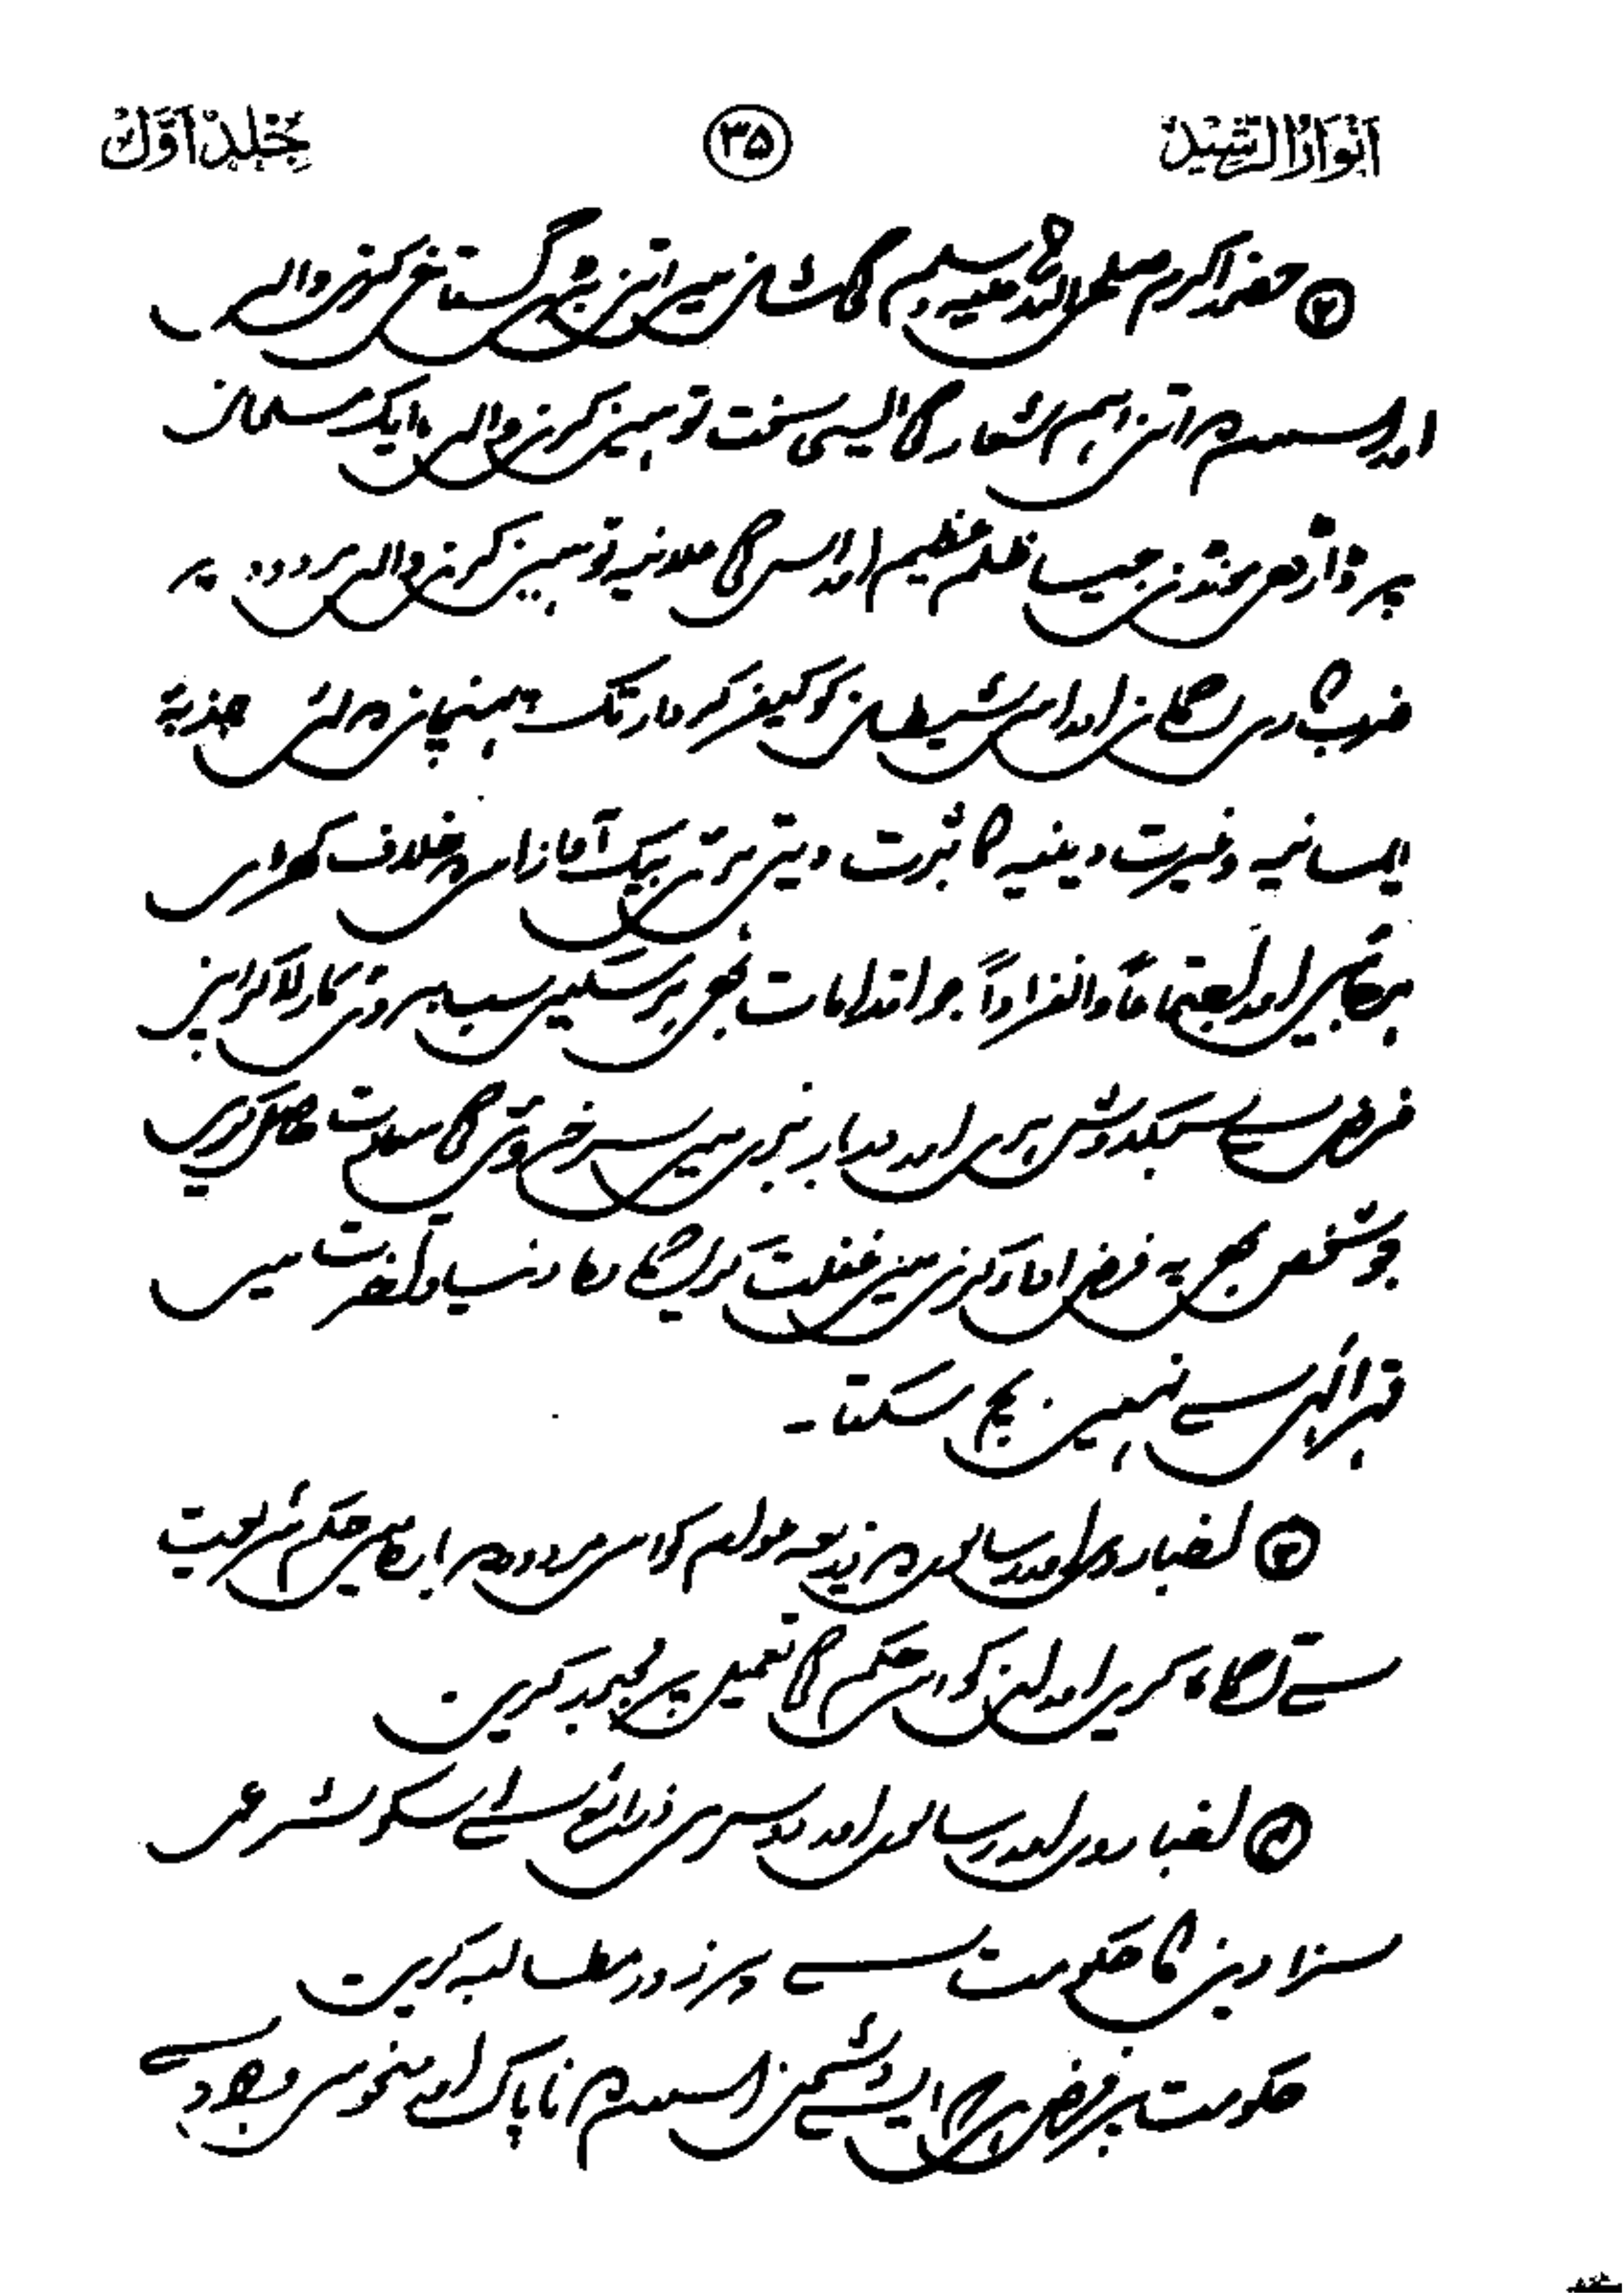 انوار الرشید ۳۵ جلد اول
حضور اکرم صلی اللہ علیہ وسلم کی شان میں اتنی بڑی گستاخی کرنے والے،
اور اسلام کے اتنے اہم شعار کی ایسی سخت توہین کرنے والے، ایک مسلمان
پر ڈاڑھی مونڈنے جیسا ظلم عظیم اور اس کی علانیہ توہین کرنے والے مردود پر
ضرب کاری لگانے اور اس شیطان کو کیفر کردار تک پہنچانے کے لئے جذبۂ
ایمانیہ وغیرت دینیہ کا ثبوت دیتے ہوئے بیک آواز اس کے خلاف کھڑے
ہوجائیں اور اجتماعاً وانفراداً جو اقدامات بھی ہوسکیں سب بروئے کار لاکر اپنے
فرض سے سبکدوش ہوں اور دربار نبوی میں سرخ روئی کی سعادت حاصل کریں
جو شخص بھی یہ فرض ادا کرنے میں غفلت کرے گا وہ دنیا وآخرت میں
قہر الٰہی سے نہیں بچ سکتا۔
اخباروں اور رسالوں کے ذریعہ عوام کو اس مردود کے بارے میں حکم شریعت
سے آگاہ کریں اور ان کو اس حکم کی تعمیل پر مجبور کریں
اخباروں اور رسالوں اور دوسرے ذرائع سے اس کو شرعی
سزا دینے کا حکومت سے پرزور مطالبہ کریں
حکومت پر فرض ہے کہ ایسے دشمن اسلام کے ناپاک اور منحوس وجود سے